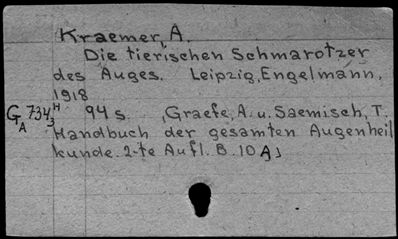 Kraemer, A.
Die tierischen Schmarotzer
des Auges. Leipzig, Engelmann,
1918
G 734 H 94 s. (Graefe, A. u. Saemisch, T.
A 3
Handbuch der gesamten Augenheil
kunde. 2-te Aufl. B. 10 A)